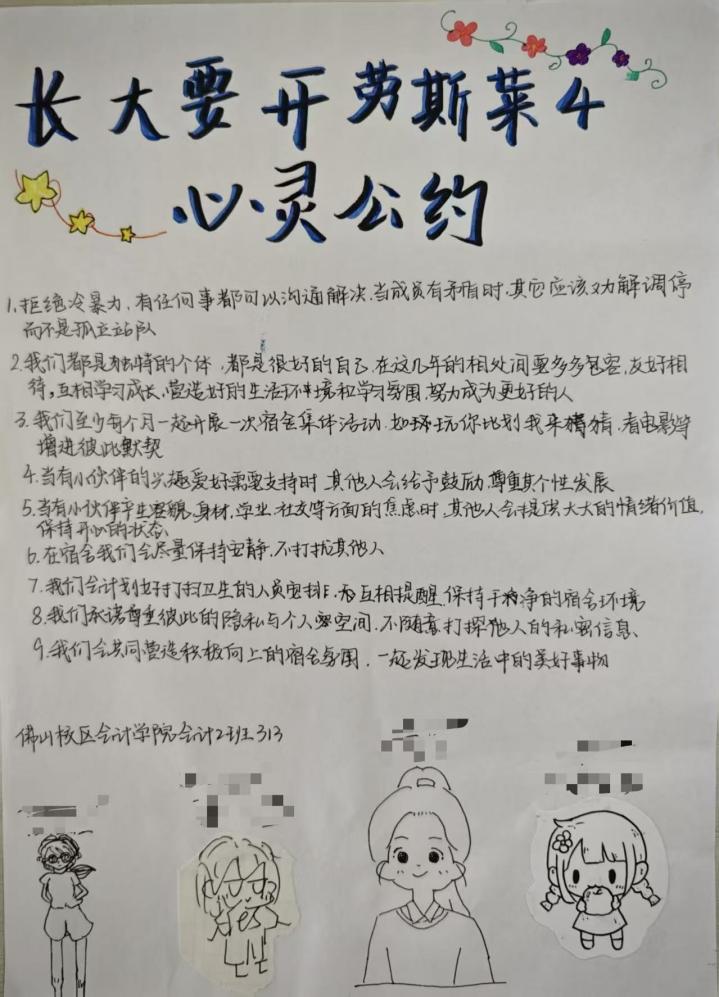 长大要开劳斯莱4
心灵公约
1.拒绝冷暴力,有任何事都可以沟通解决.当成员有矛盾时.其它应该劝解调停
而不是孤立站队
2.我们都是独特的个体,都是很好的自己.在这几年的相处间要多多包容,友好相
待,互相学习成长,营造好的生活环境和学习氛围,努力成为更好的人
3.我们至少每个月一起开展一次宿舍集体活动.如环玩你比划我来猜猜,看电影等
增进彼此默契
4.当有小伙伴的兴趣爱好需要支持时.其他人会给予鼓励.尊重其个性发展
5.当有小伙伴产生容貌.身材.学业.社交等方面的焦虑时.其他人会提供大大的情绪价值,
保持开心的状态
6.在宿舍我们会尽量保持安静.不打扰其他人
7.我们会计划好打扫卫生的人员安排.互相提醒.保持干净的宿舍环境
8.我们承诺尊重彼此的隐私与个人空间.不随意打探他人的私密信息
9.我们会共同营造积极向上的宿舍氛围.一起发现生活中的美好事物
佛山校区会计学院会计2班313